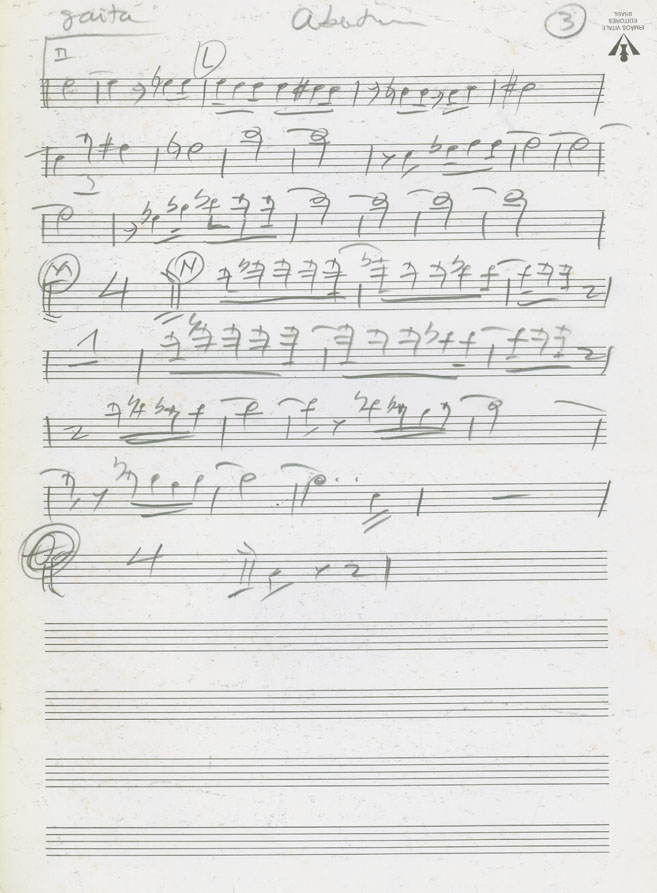 gaita Abertura 3
IRMÃOS VITALE
EDITORES
BRASIL
II L
M 4 N 2
1 2
2
4 2